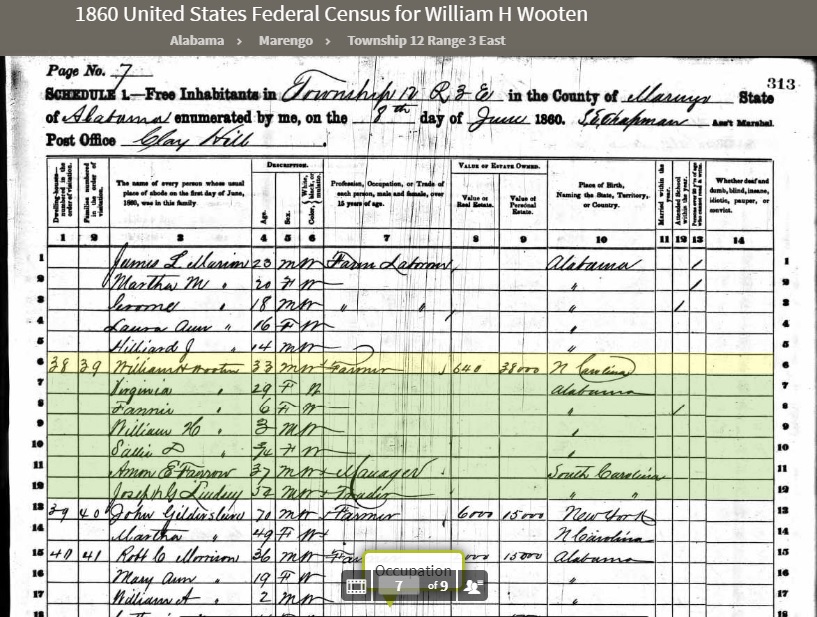 1860 United States Federal Census for William H Wooten
Alabama > Marengo > Township 12 Range 3 East
Page No. 7
313
SCHEDULE 1.—Free Inhabitants in Township 12 R 3 E in the County of Marengo State
of Alabama enumerated by me, on the 8th day of June 1860. Chapman Ass't Marshal.
Post Office Clay Hill
DESCRIPTION. VALUE OF ESTATE OWNED.
Dwelling-houses—numbered in the order of visitation. Families numbered in the order of visitation. The name of every person whose usual place of abode on the first day of June, 1860, was in this family. Age. Sex. Color, White, black, or mulatto. Profession, Occupation, or Trade of each person, male and female, over 15 years of age. Value of Real Estate. Value of Personal Estate. Place of Birth, Naming the State, Territory, or Country. Married within the year. Attended School within the year. Whether deaf and dumb, blind, insane, idiotic, pauper, or convict.
1 2 3 4 5 6 7 8 9 10 11 12 13 14
1 James L 23 M W Farm Laborer Alabama / 1
2 Martha M " 20 F W " / 2
3 " 18 M W " " " / 3
4 Laura Ann " 16 F W " 4
5 Hilliard J " 14 M W " 5
6 38 39 William H Wooten 33 M W Farmer 640 38000 N Carolina 6
7 Virginia " 29 F W Alabama 7
8 Fannie " 6 F W " / 8
9 William H " 3 M W " 9
10 Sallie D " F W " 10
11 Amon E Farrow 37 M W Manager South Carolina 11
12 Joseph G Lindsey 52 M W Trader " " 12
13 39 40 John Gildersleeve 70 M W Farmer 6000 15000 New York 13
14 Martha " 49 F W N Carolina 14
15 40 41 Robt C Morrison 36 M W 15000 Alabama 15
16 Mary Ann " 19 F W " 16
17 William A " 2 M W " 17
18 18
Occupation
7 of 9